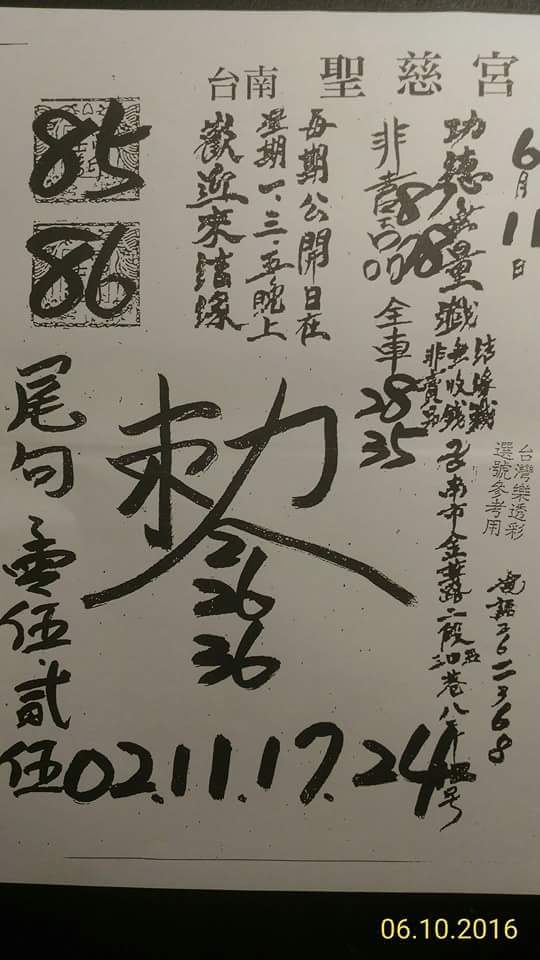 台南 聖慈宮
6月11日
功德無量
非賣品
8
08
全車
28
35
結緣
無收錢
非賣品
台灣樂透彩
選號參考用
台南市金華路二段
巷八
號
電話2622368
每期公開日在
星期一、三、五晚上
歡迎來結緣
85
86
敕令
2
26
36
尾句
零伍貳伍
02.11.17.24
06.10.2016